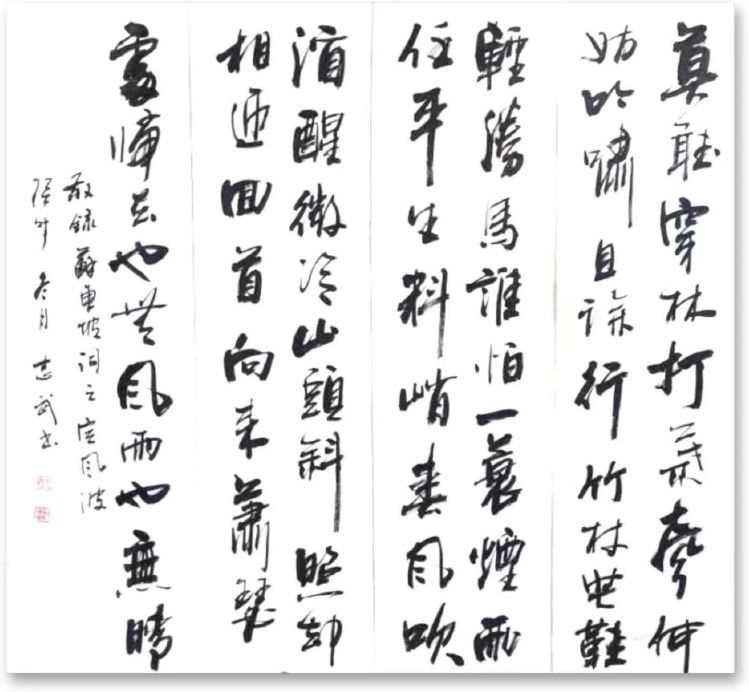 莫聽穿林打葉聲何
妨吟嘯且徐行竹杖芒鞋
輕勝馬誰怕一蓑煙雨
任平生料峭春風吹
酒醒微冷山頭斜照却
相迎回首向来蕭瑟
處歸去也無風雨也無晴
敬錄蘇東坡詞之定風波
冬月志武书